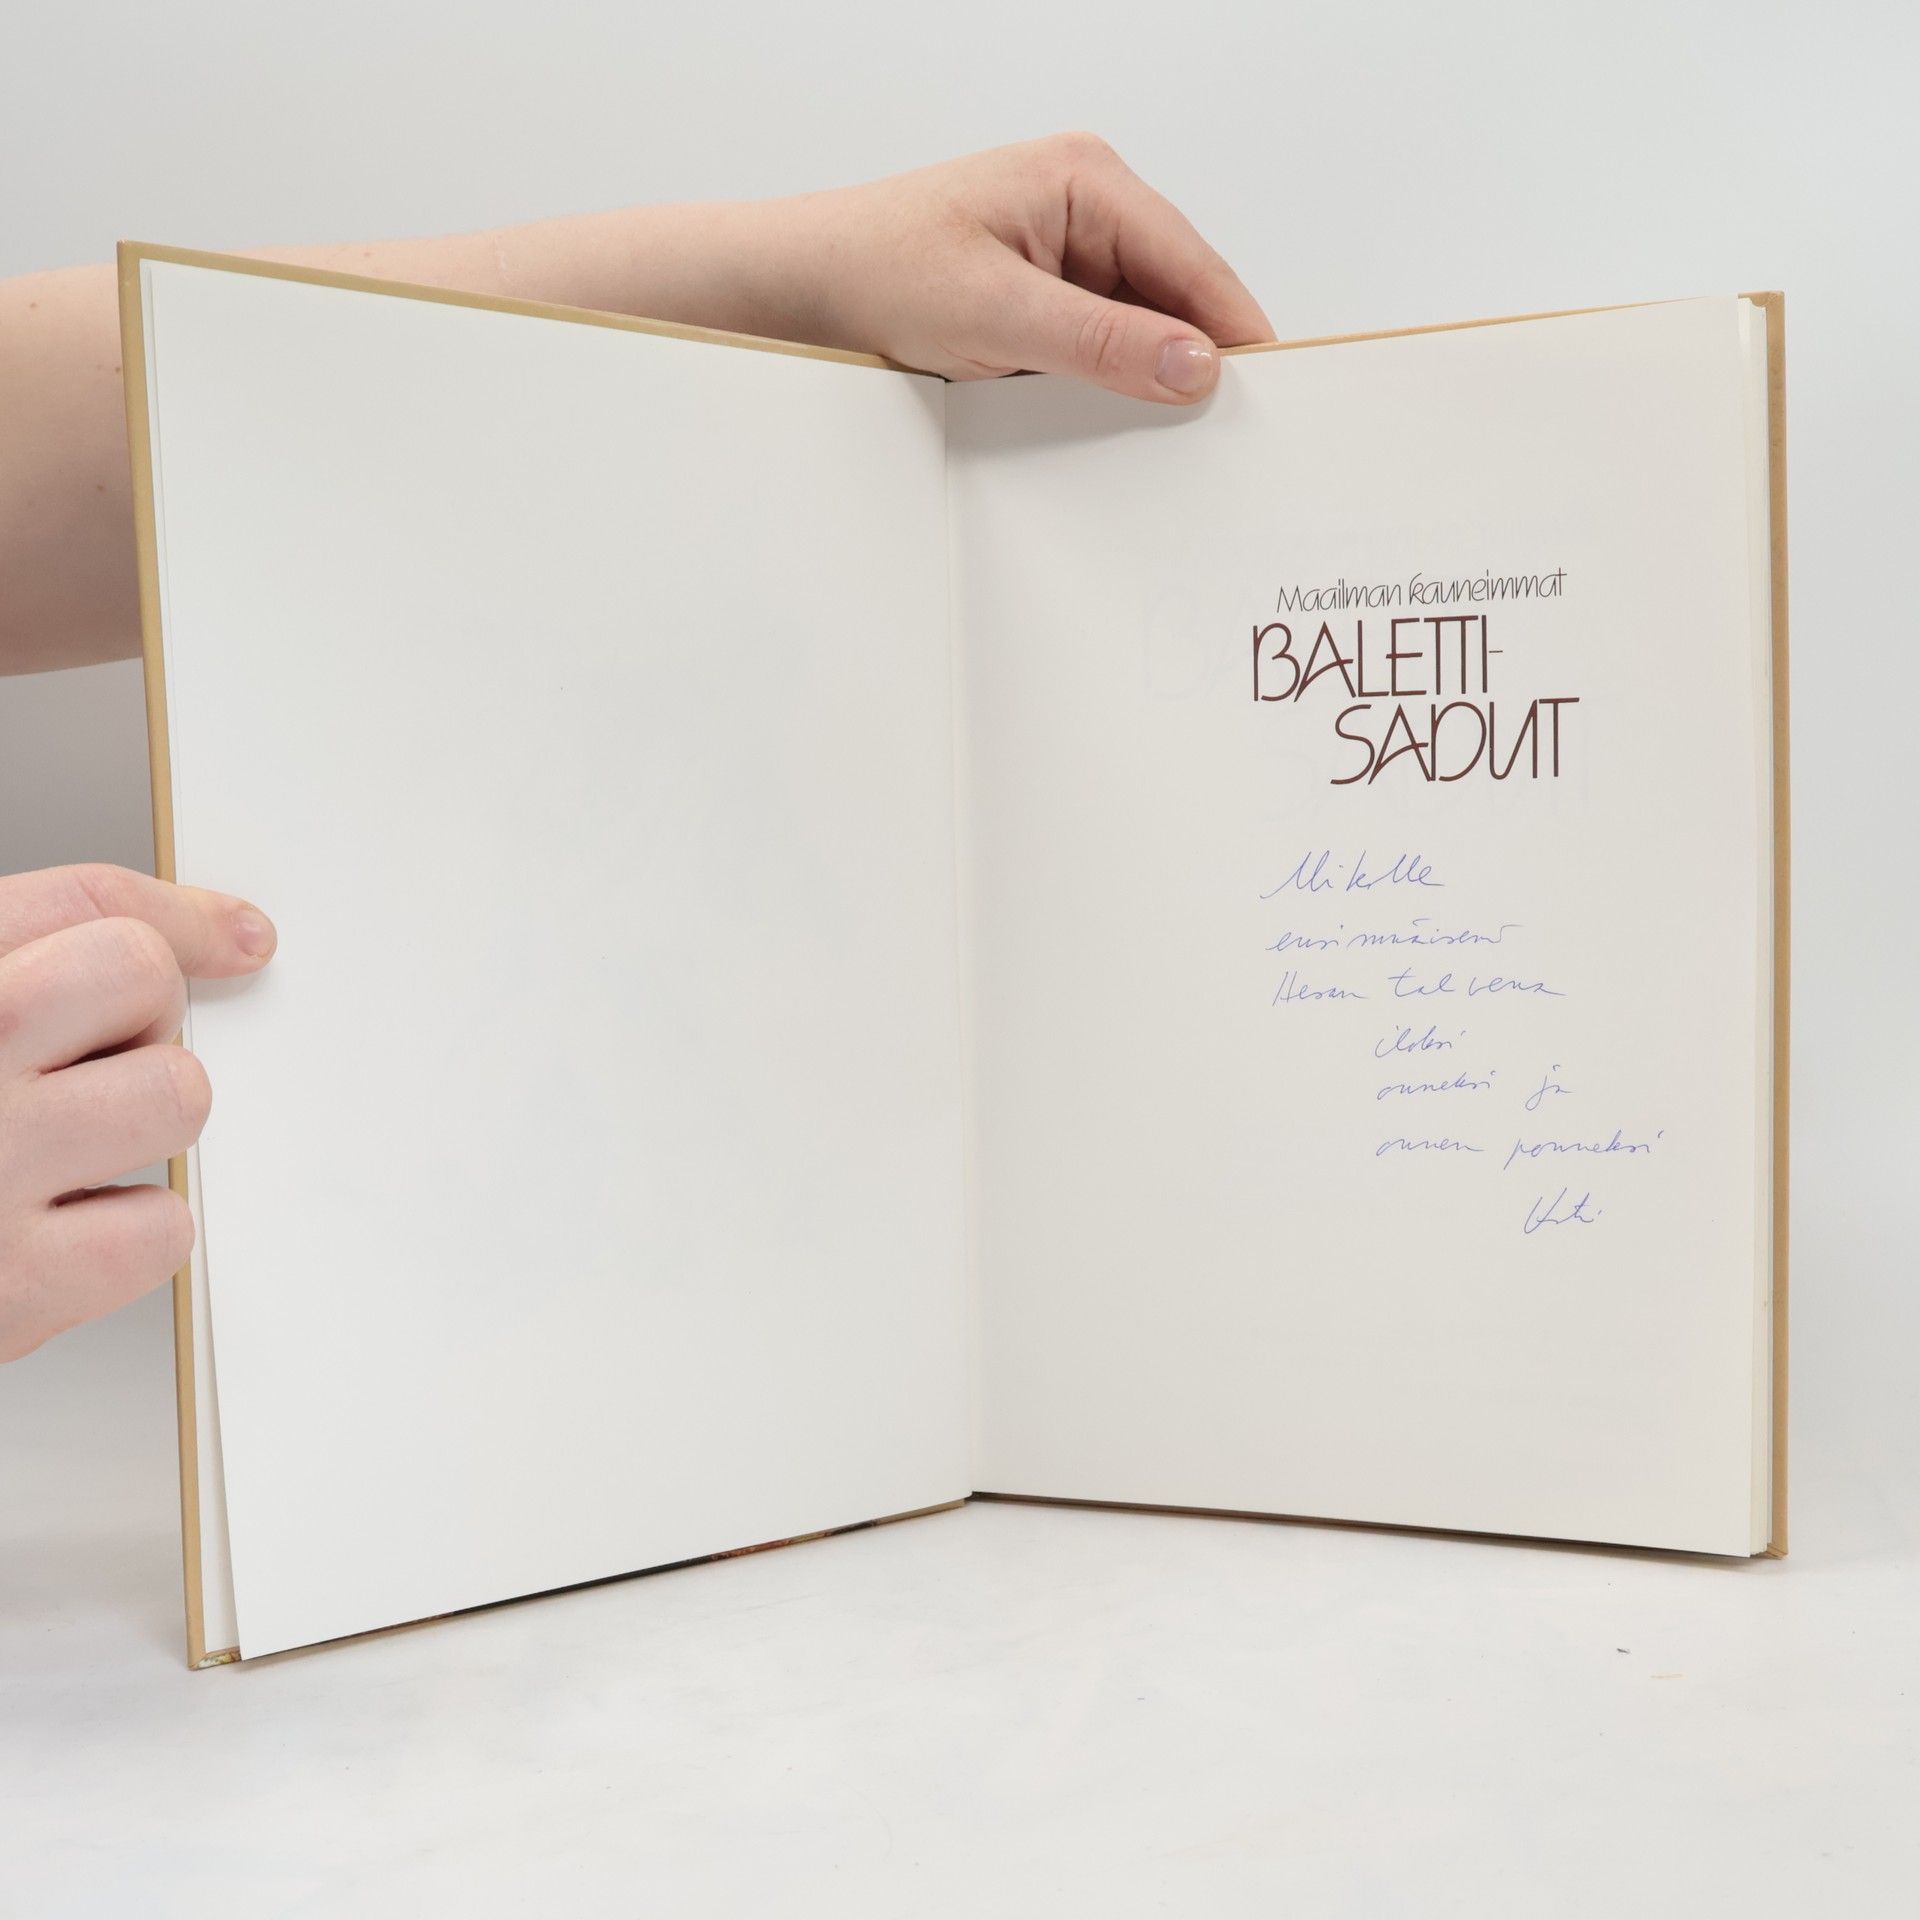 Maailman kauneimmat
BALETTI-
SADUT
Mikolle
ensimmäisenä
Hesan talvena
iloksi
onneksi ja
onnen ponneksi